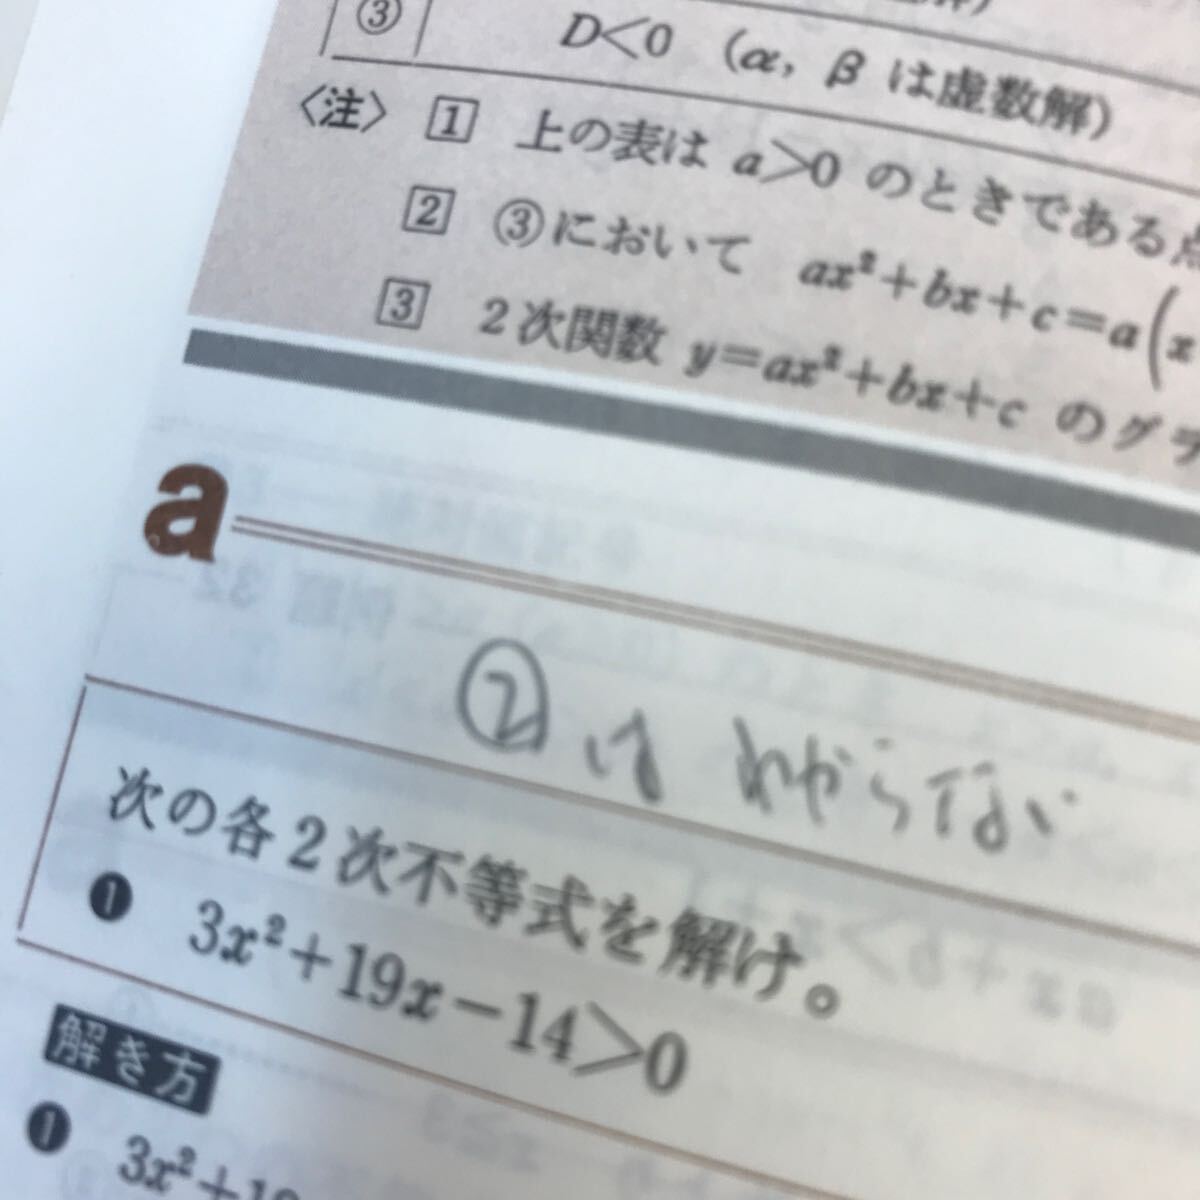 ③ D<0 (α, β は虚数解)
〈注〉 1 上の表は a>0 のときである
2 ③において ax²+bx+c=a(x
3 2次関数 y=ax²+bx+c のグラ
a
② は わからない
次の各2次不等式を解け。
❶ 3x²+19x-14>0
解き方
❶ 3x²+19